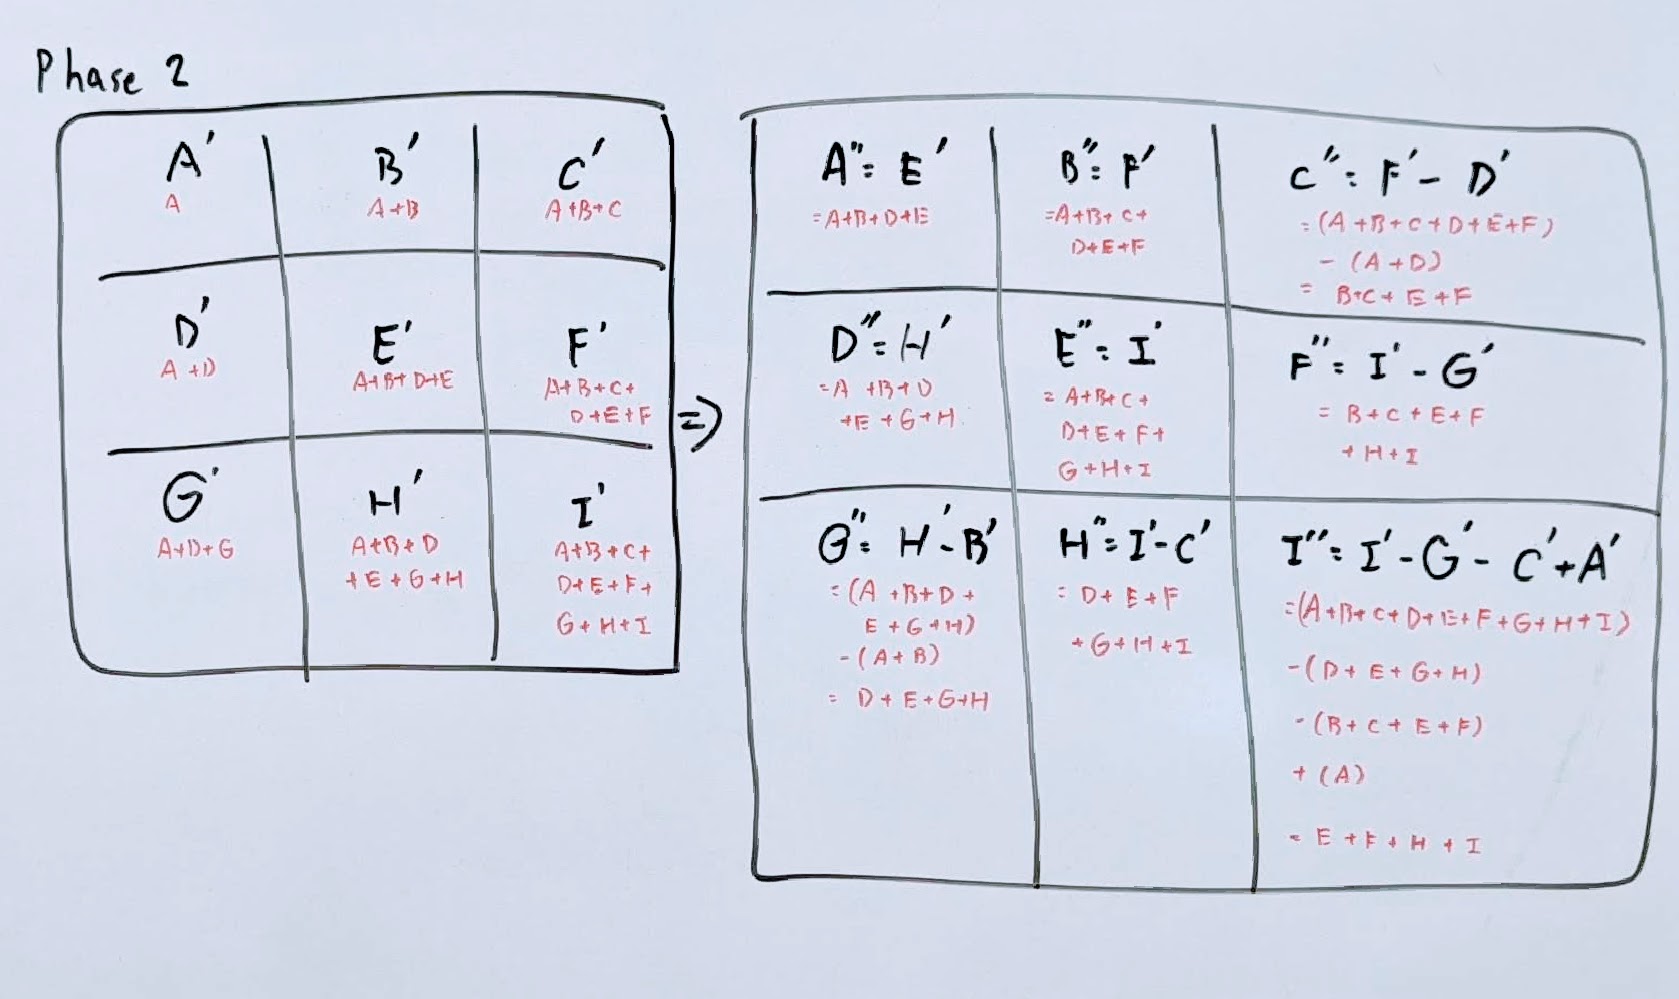 Phase 2
A'
A
B'
A+B
C'
A+B+C
D'
A+D
E'
A+B+D+E
F'
A+B+C+
D+E+F
G'
A+D+G
H'
A+B+D
+E+G+H
I'
A+B+C+
D+E+F+
G+H+I
=>
A''= E'
=A+B+D+E
B''= F'
=A+B+C+
D+E+F
C''= F' - D'
=(A+B+C+D+E+F)
-(A+D)
= B+C+E+F
D''= H'
=A+B+D
+E+G+H
E''= I'
= A+B+C+
D+E+F+
G+H+I
F''= I' - G'
= B+C+E+F
+H+I
G''= H'-B'
=(A+B+D+
E+G+H)
-(A+B)
= D+E+G+H
H''= I'-C'
= D+E+F
+G+H+I
I''= I'-G'-C'+A'
=(A+B+C+D+E+F+G+H+I)
-(D+E+G+H)
-(B+C+E+F)
+(A)
= E+F+H+I